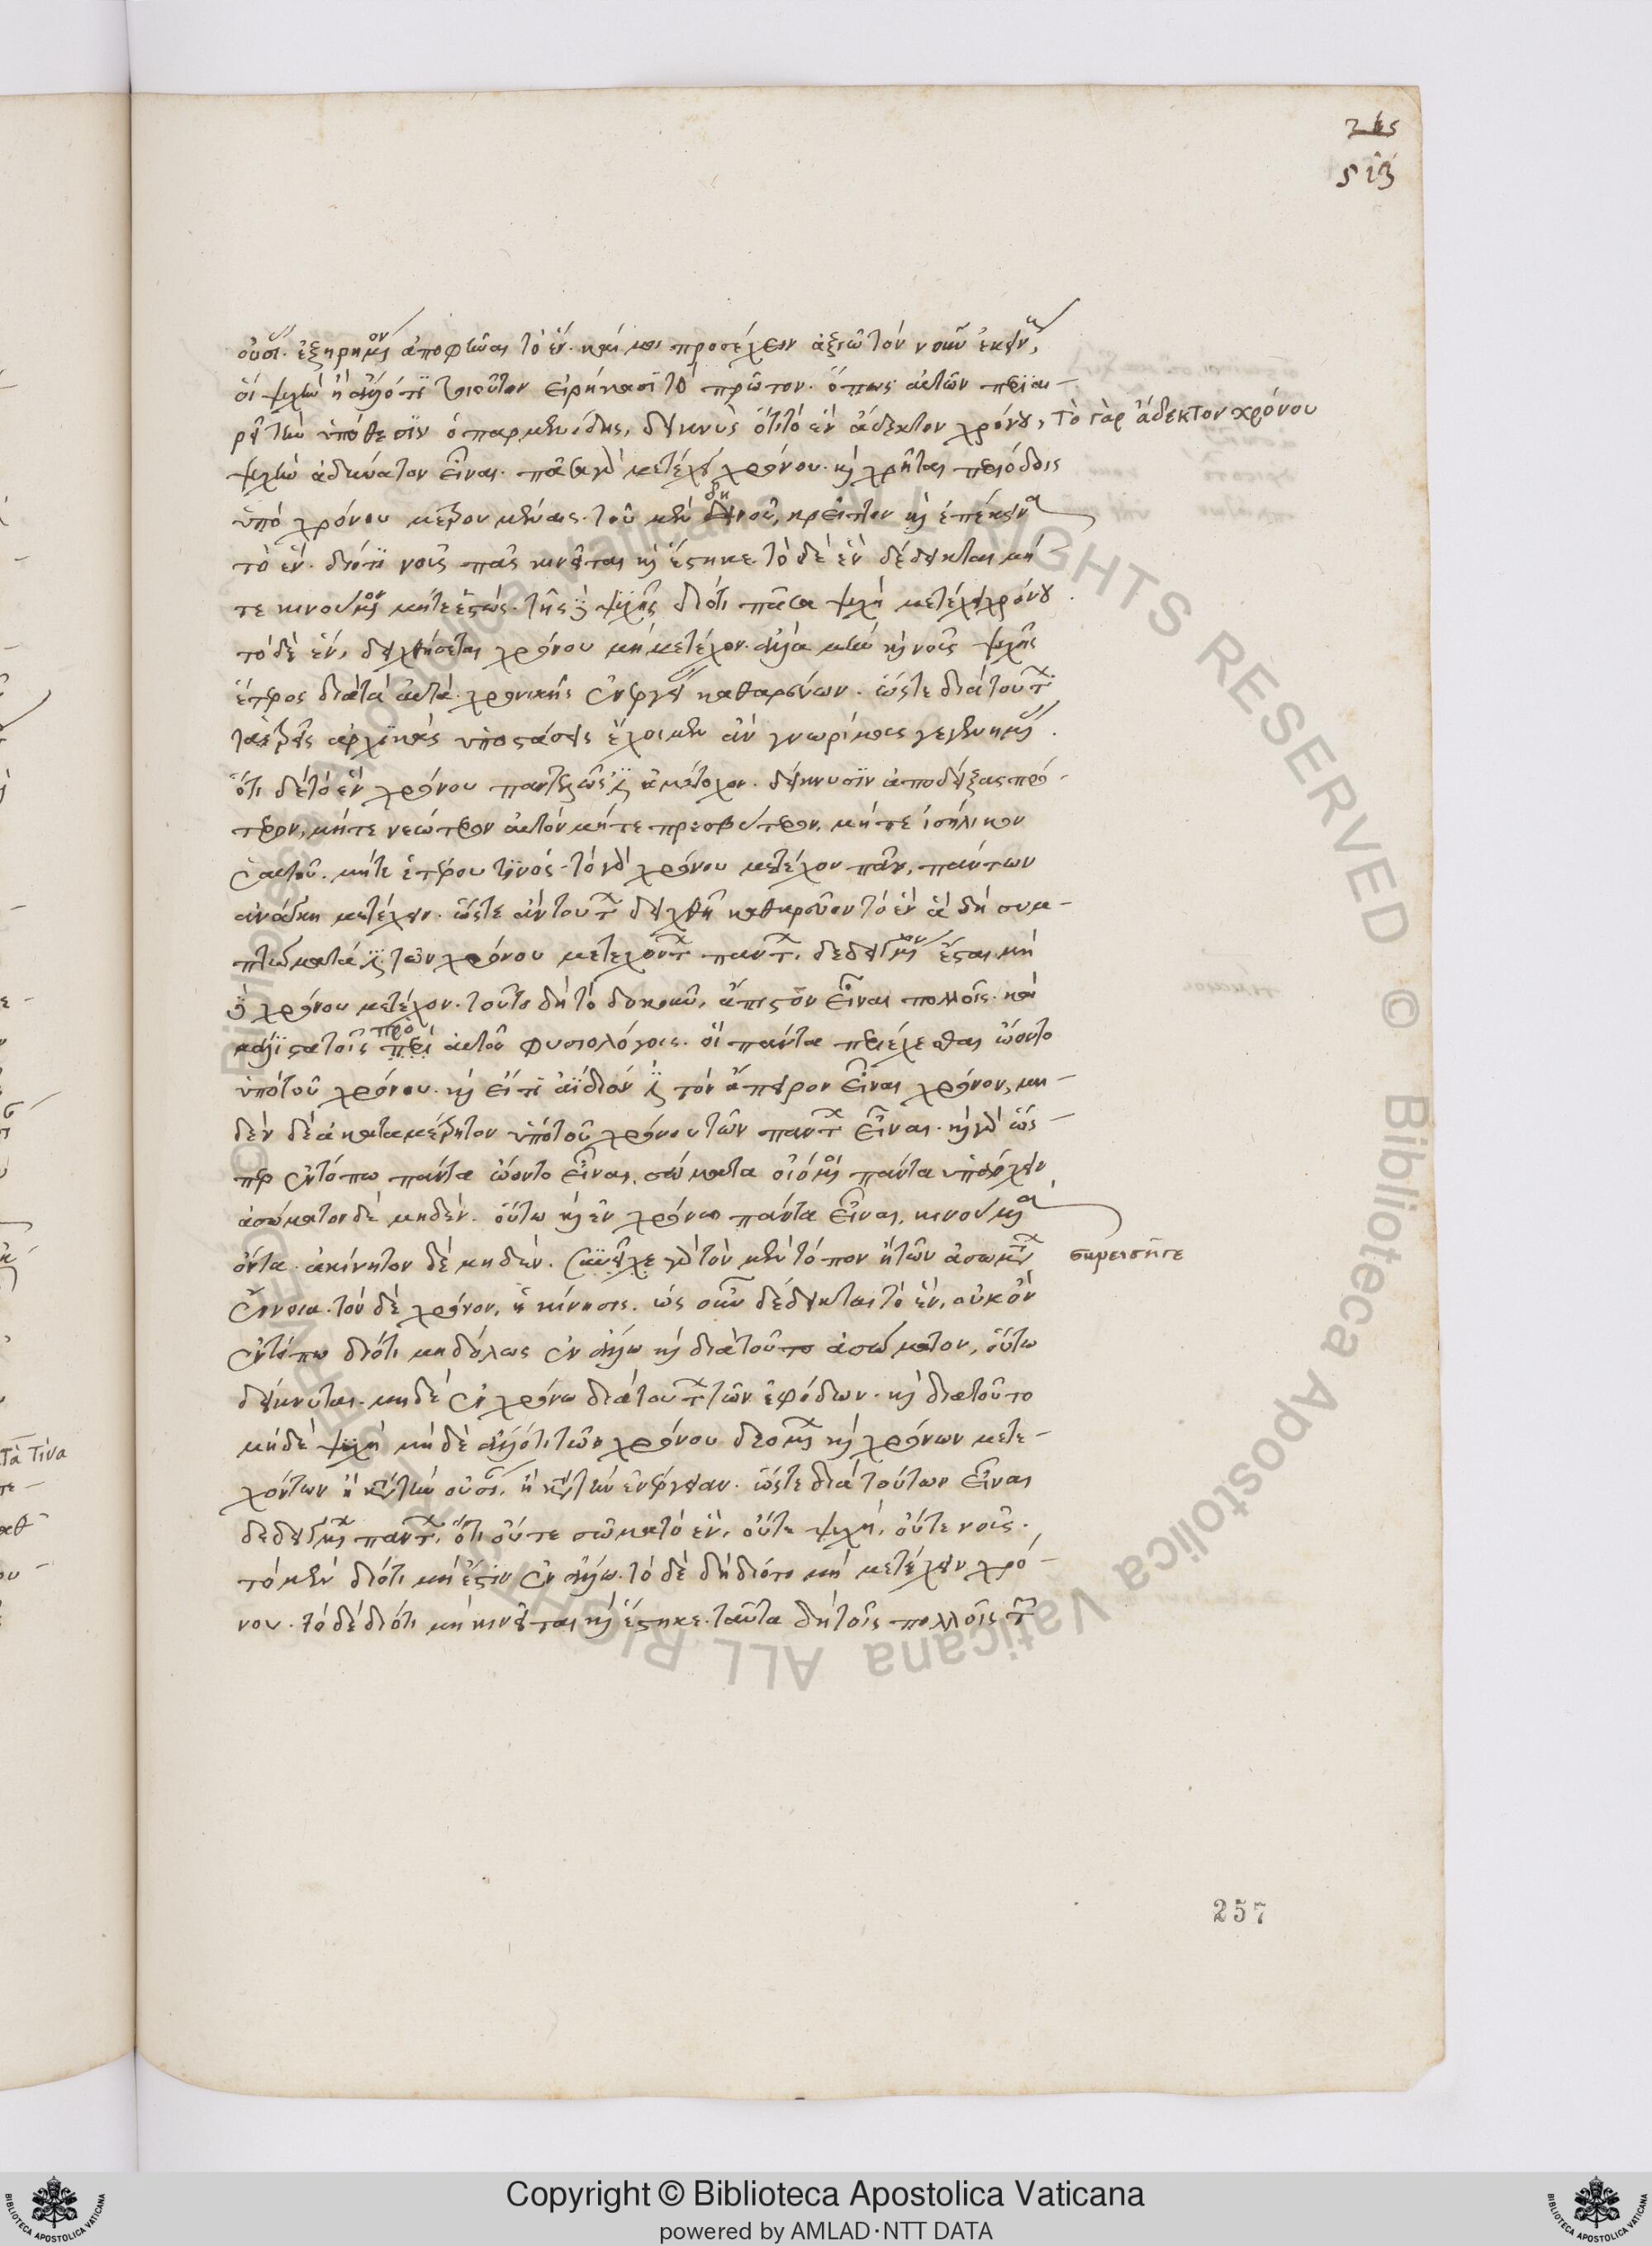 ςιβ
οὐσίας ἐξηρημένον ἀποφῆναι τὸ ἕν. καί μοι προσέχειν ἀξιῶ τὸν νοῦν ἐκείνοις,
οἳ ψυχὴν ἢ ἄλλο τι τοιοῦτον εἰρήκασι τὸ πρῶτον. ὅπως αὐτῶν περιαι-
ρεῖ τὴν ὑπόθεσιν ὁ παρμενίδης, δεικνὺς ὅτι τὸ ἓν ἄδεκτον χρόνου, τὸ γὰρ ἄδεκτον χρόνου
ψυχὴν ἀδύνατον εἶναι. πᾶσα γὰρ μετέχει χρόνου. καὶ χρῆται περιόδοις
ὑπὸ χρόνου μετρουμέναις. τοῦ μὲν δὴ νοῦ, κρεῖττον καὶ ἐπέκεινα
τὸ ἕν. διότι νοῦς πᾶς κινεῖται καὶ ἕστηκε. τὸ δὲ ἓν δέδεικται μή
τε κινούμενον μήτε ἑστώς. τῆς δὲ ψυχῆς διότι πᾶσα ψυχὴ μετέχει χρόνου.
τὸ δὲ ἕν, δειχθήσεται χρόνου μὴ μετέχον. ἀλλὰ μὴν καὶ νοῦς ψυχῆς
ἕτερος διὰ τὰ αὐτὰ χρονικῆς ἐνεργείας καθαρεύων. ὥστε διὰ τούτων
τὰς τρεῖς ἀρχικὰς ὑποστάσεις ἔχοιμεν ἂν γνωρίμους γεγενημένας.
ὅτι δὲ τὸ ἓν χρόνου παντελῶς ἐστὶ ἀμέτοχον. δείκνυσιν ἀποδείξας πρό-
τερον, μήτε νεώτερον αὐτὸ μήτε πρεσβύτερον, μήτε ἰσήλικον
ἑαυτοῦ. μήτε ἑτέρου τινός. τὸ γὰρ χρόνου μετέχον πᾶν, πάντων
ἀνάγκη μετέχειν. ὥστε ἂν τούτων δειχθῇ καθαρεῦον τὸ ἓν ἃ δὴ συμ-
πτώματά ἐστι τῶν χρόνου μετεχόντων πάντων, δεδειγμένον ἔσται μὴ
δὲ χρόνου μετέχον. τοῦτο δὴ τὸ δοκοῦν, ἄπιστον εἶναι πολλοῖς. καὶ
μάλιστα τοῖς πρὸ αὐτοῦ φυσιολόγοις. οἳ πάντα περιέχεσθαι ᾤοντο
ὑπὸ τοῦ χρόνου. καὶ εἴ τι ἀΐδιόν ἐστι τὸν ἄπειρον εἶναι χρόνον, μη-
δὲν δὲ ἀκαταμέτρητον ὑπὸ τοῦ χρόνου τῶν πάντων εἶναι. καὶ γὰρ ὥς-
περ ἐν τόπω πάντα ᾤοντο εἶναι, σώματα οἰόμενοι πάντα ὑπάρχειν
ἀσώματον δὲ μηδέν. οὕτω καὶ ἐν χρόνω πάντα εἶναι, κινούμενα
ὄντα. ἀκίνητον δὲ μηδέν. γὰρ τὸν μὲν τόπον ἡ τῶν ἀσωμάτων
ἔννοια. τὸν δὲ χρόνον, ἡ κίνησις. ὡς οὖν δέδεικται τὸ ἕν, οὐκ ὂν
ἐν τόπω διότι μηδόλως ἐν ἄλλω καὶ διὰ τοῦτο ἀσώματον, οὕτω
δείκνυται. μηδὲ ἐν χρόνω διὰ τούτων τῶν ἐφόδων. καὶ διατοῦτο
μήδὲ ψυχὴ μήδὲ ἄλλό τι τῶν χρόνου δεομένων καὶ χρόνων μετε-
χόντων ἢ κατὰ τὴν οὐσίαν, ἢ κατὰ τὴν ἐνέργειαν. ὥστε διὰ τούτων εἶναι
δεδειγμένων πάντων, ὅτι οὔτε σῶμα τὸ ἕν, οὔτε ψυχή, οὔτε νοῦς.
τὸ μὲν διότι μὴ ἔστιν ἐν ἄλλω. τὸ δὲ δὴ διότι μὴ μετέχειν χρό-
νου. τὸ δὲ διότι μὴ κινεῖται καὶ ἕστηκε. ταῦτα δὴ τοῖς πολλοῖς τῶν
257
Copyright © Biblioteca Apostolica Vaticana
powered by AMLAD·NTT DATA